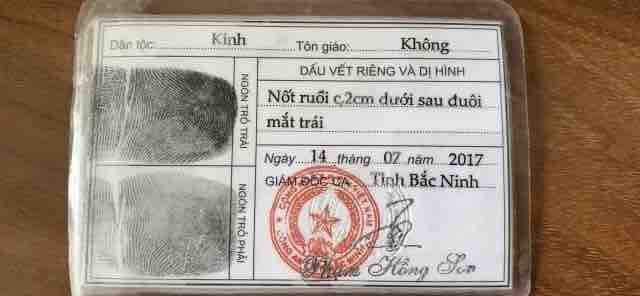 Dân tộc: Kinh Tôn giáo: Không
NGÓN TRỎ TRÁI
DẤU VẾT RIÊNG VÀ DỊ HÌNH
Nốt ruồi c,2cm dưới sau đuôi
mắt trái
Ngày 14 tháng 07 năm 2017
GIÁM ĐỐC CA Tỉnh Bắc Ninh
NGÓN TRỎ PHẢI
Phạm Hồng Sơn